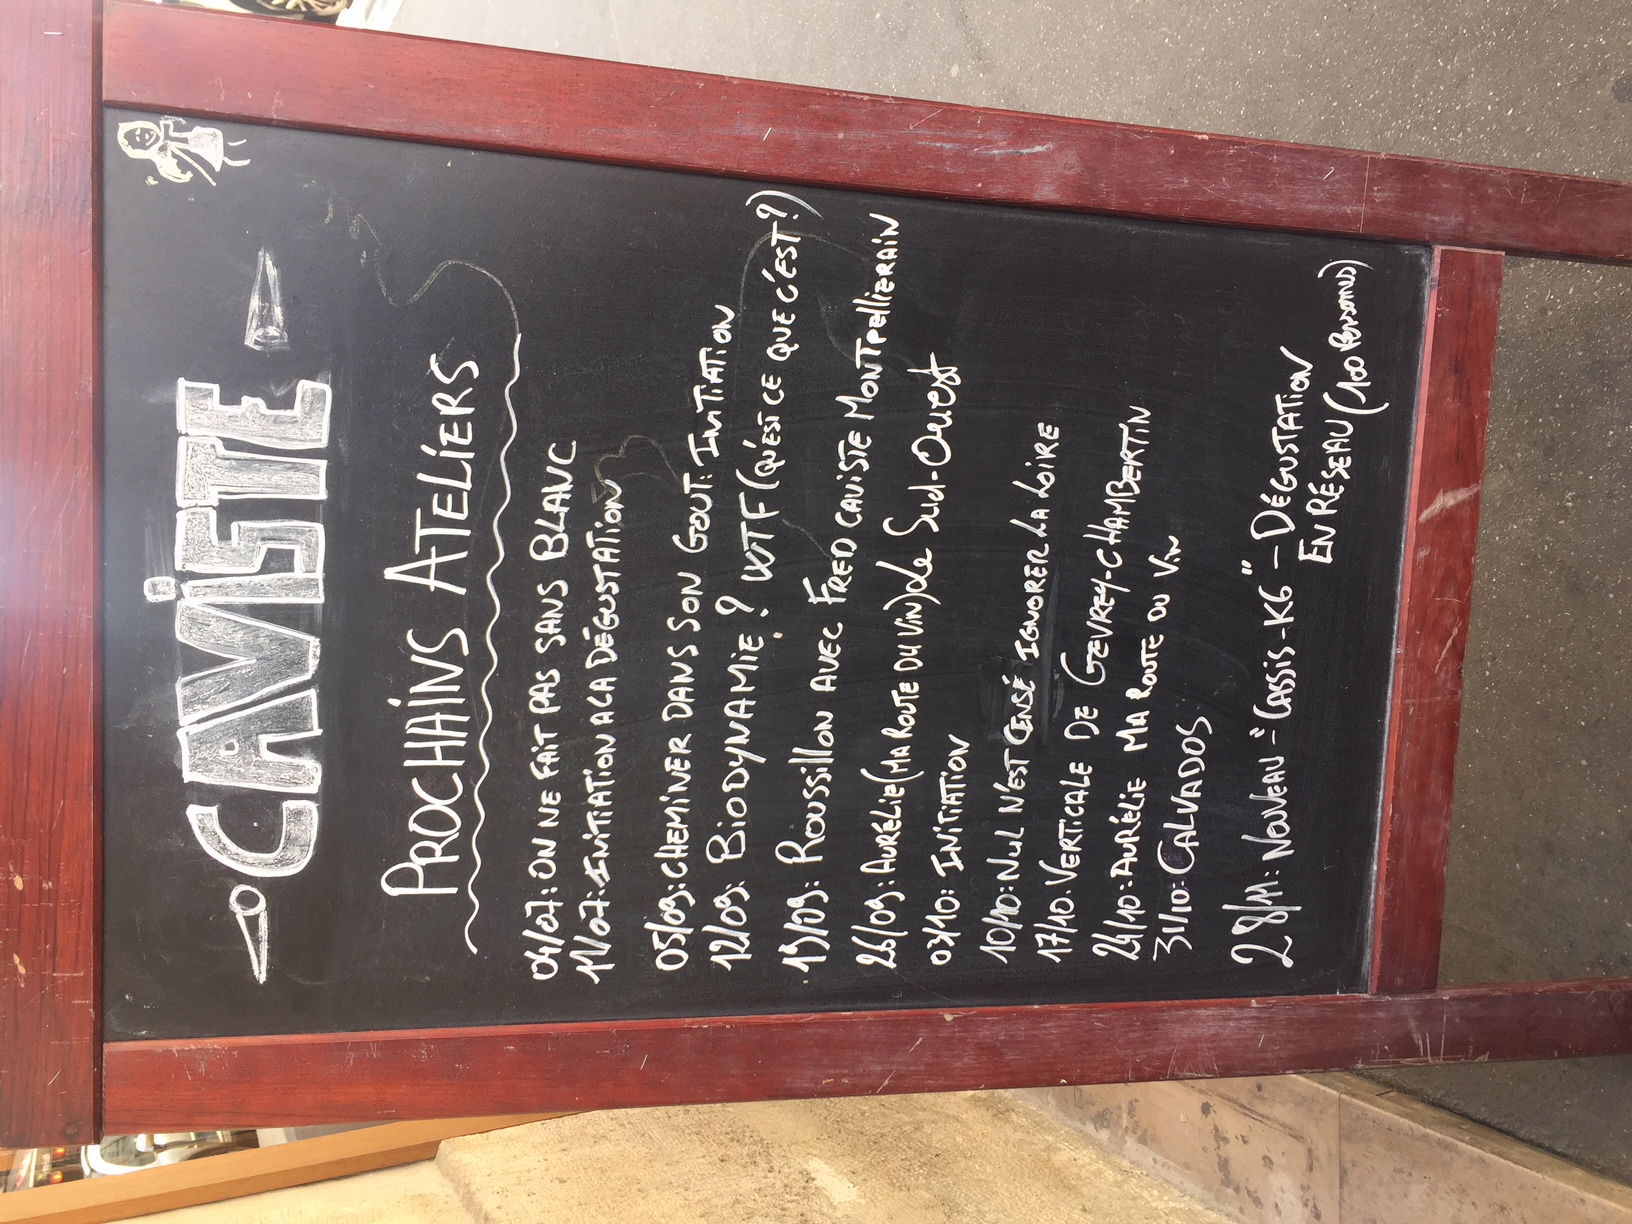 CAVISTE
PROCHAINS ATELIERS
04/07: ON NE FAIT PAS SANS BLANC
11/07: INITIATION A LA DÉGUSTATION
05/09: CHEMINER DANS SON GOUT: INITIATION
12/09: BIODYNAMIE? WTF (QU'EST CE QUE C'EST?)
19/09: ROUSSILLON AVEC FRED CAVISTE MONTPELLIERAIN
26/09: AURÉLIE (MA ROUTE DU VIN) Le Sud-Ouest
03/10: INITIATION
10/10: NUL N'EST CENSÉ IGNORER LA LOIRE
17/10: VERTICALE DE GEVREY-CHAMBERTIN
24/10: AURÉLIE MA ROUTE DU VIN
31/10: CALVADOS
28/11: NOUVEAU - "CASSIS-K6" - DÉGUSTATION
EN RÉSEAU (100 Personnes)